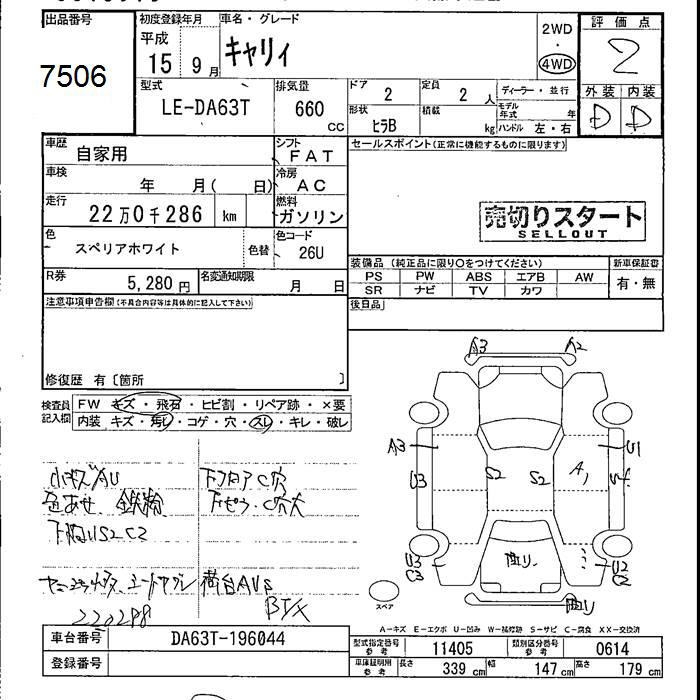 出品番号
7506
初度登録年月
平成
15 9月
車名・グレード
キャリィ
2WD
・
4WD
評価点
2
外装 内装
D D
型式
LE-DA63T
排気量
660
CC
ドア
2
定員
2 人
形状
ヒラB
積載
kg
ディーラー・並行
モデル年式 年
ハンドル 左・右
車歴
自家用
シフト
FAT
車検
年 月( 日)
冷房
AC
走行
22万0千286 km
燃料
ガソリン
色
スペリアホワイト
色替
色コード
26U
R券
5,280円
名変通知期限
月 日
セールスポイント(正常に機能するものに限ります)
売切りスタート
SELLOUT
装備品(純正品に限り〇をつけてください)
PS PW ABS エアB AW
SR ナビ TV カワ
新車保証書
有・無
後日品
注意事項申告欄(不具合内容等は具体的に記入して下さい)
修復歴 有〔箇所 〕
検査員
記入欄
FW キズ・飛石・ヒビ割・リペア跡・×要
内装 キズ・汚レ・コゲ・穴・スレ・キレ・破レ
小キズAU
色あせ 鉄粉
下廻りS2C2
下フロアC穴
荷台AUS
BTX
220298
A3
A2
A3
U3
S2
S2
A1
U1
U3
C3
曲り
U2
C2
曲U
スペア
A-キズ E-エクボ U-凹み W-補修跡 S-サビ C-腐食 XX-交換済
車台番号
DA63T-196044
登録番号
型式指定番号
参考
11405
類別区分番号
参考
0614
車庫証明用
参考
長さ 339cm 幅 147cm 高さ 179cm